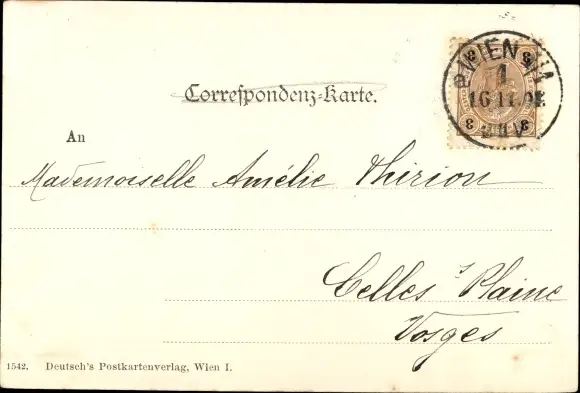 Correspondenz-Karte.
WIEN
1
16.11.
3 3
3 3
An
Mademoiselle Amélie Thirion
Celles s/ Plaine
Vosges
1542. Deutsch's Postkartenverlag, Wien I.